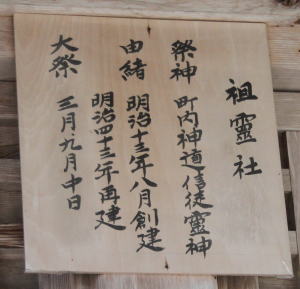 祖靈社
祭神 町内神道信徒靈神
由緒 明治十三年八月創建
明治四十三年再建
大祭 三月・九月中日